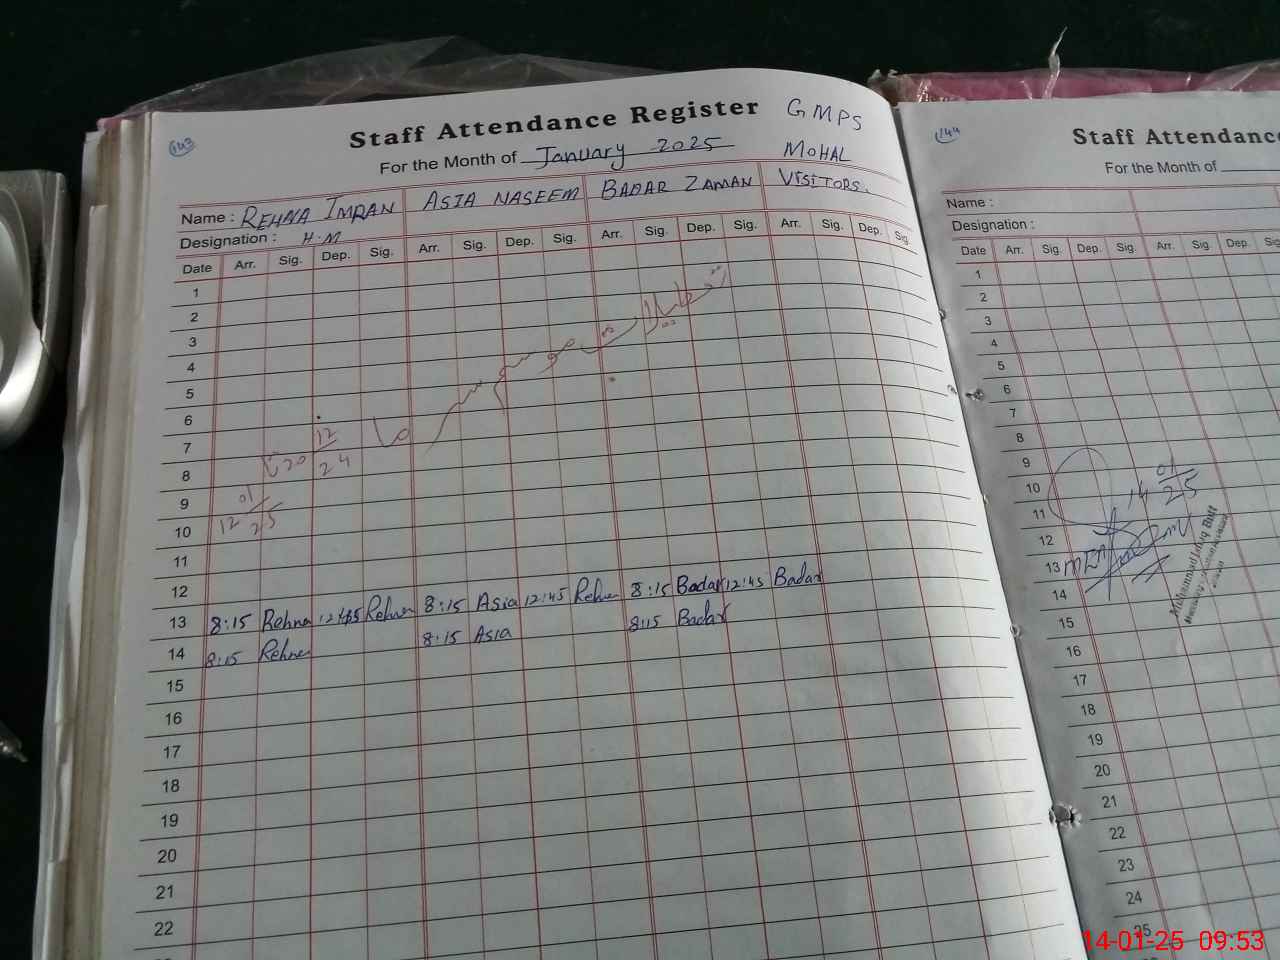 143
Staff Attendance Register GMPS
For the Month of January 2025 MOHAL
Name : REHNA IMRAN ASIA NASEEM BADAR ZAMAN VISITORS.
Designation : H.M
Date Arr. Sig. Dep. Sig. Arr. Sig. Dep. Sig. Arr. Sig. Dep. Sig. Arr. Sig. Dep. Sig.
1
2
3
4
5
6
7
8
9
10
11
12
13 8:15 Rehna 12:45 Rehna 8:15 Asia 12:45 Rehna 8:15 Badar 12:45 Badar
14 8:15 Rehna 8:15 Asia 8:15 Badar
15
16
17
18
19
20
21
22
20 12/24
12 01/25
144
Staff Attendance
For the Month of
Name :
Designation :
Date Arr. Sig. Dep. Sig. Arr. Sig. Dep.
1
2
3
4
5
6
7
8
9
10
11
12
13
14
15
16
17
18
19
20
21
22
23
24
25
14 01/25
Muhammad Butt
14-01-25 09:53